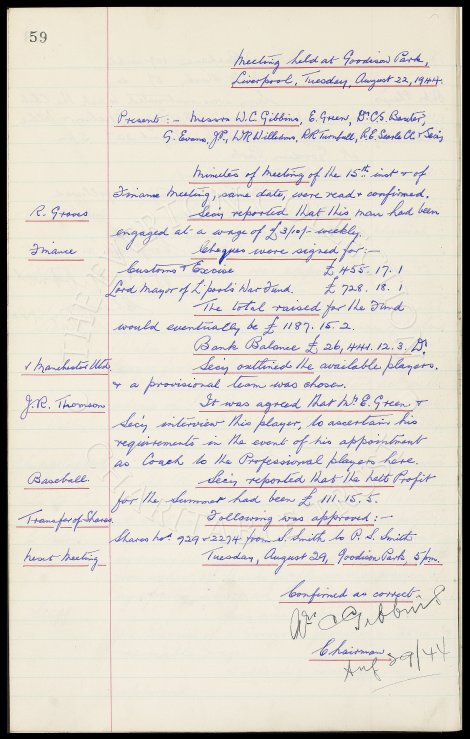 59
Meeting held at Goodison Park,
Liverpool, Tuesday, August 22, 1944.
Present :- Messrs W.C. Gibbins, E. Green, Dr C.S. Baxter,
G. Evans, JP, W.R. Williams, R.R. Turnbull, R.E. Searle Ch & Secy
Minutes of Meeting of the 15th inst & of
Finance Meeting, same date, were read & confirmed.
R. Graves
Secy reported that this man had been
engaged at a wage of £3/10/- weekly.
Finance
Cheques were signed for :-
Customs & Excise £ 455. 17. 1
Lord Mayor of L'pool's War Fund. £ 728. 18. 1
The total raised for the Fund
would eventually be £ 1187. 15. 2.
Bank Balance £ 26,444. 12. 3. Dr.
v Manchester Utd.
Secy outlined the available players.
& a provisional team was chosen.
J.R. Thomson
It was agreed that Mr. E. Green &
Secy interview this player, to ascertain his
requirements in the event of his appointment
as Coach to the Professional players here.
Baseball.
Secy reported that the nett Profit
for the Summer had been £ 111. 15. 5.
Transfer of Shares.
Following was approved :-
Shares nos. 929 & 2274 from S. Smith to P. S. Smith
Next Meeting
Tuesday, August 29, Goodison Park, 5pm.
Confirmed as correct
Wm C Gibbins
Chairman
Aug 29/44